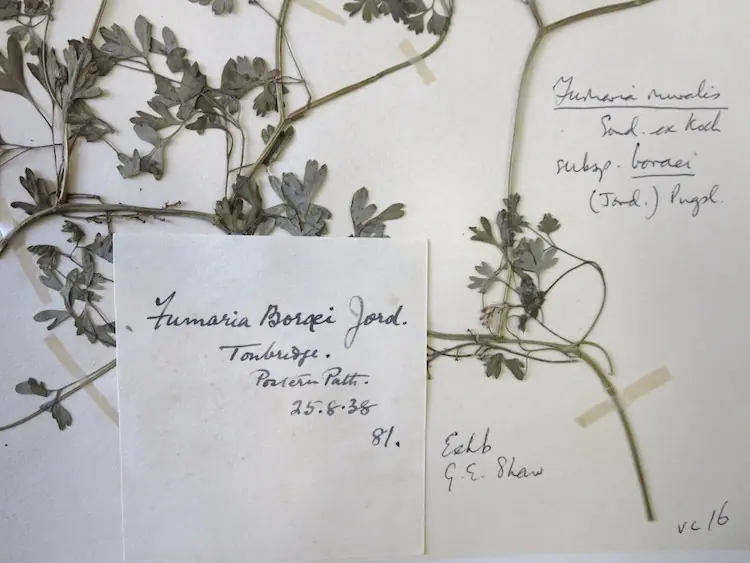 Fumaria muralis
Sond. ex Koch
subsp. boraei
(Jord.) Pugsl.
Fumaria Boræi Jord.
Tonbridge.
Postern Path.
25.8.38
81.
G.E. Shaw
vc 16